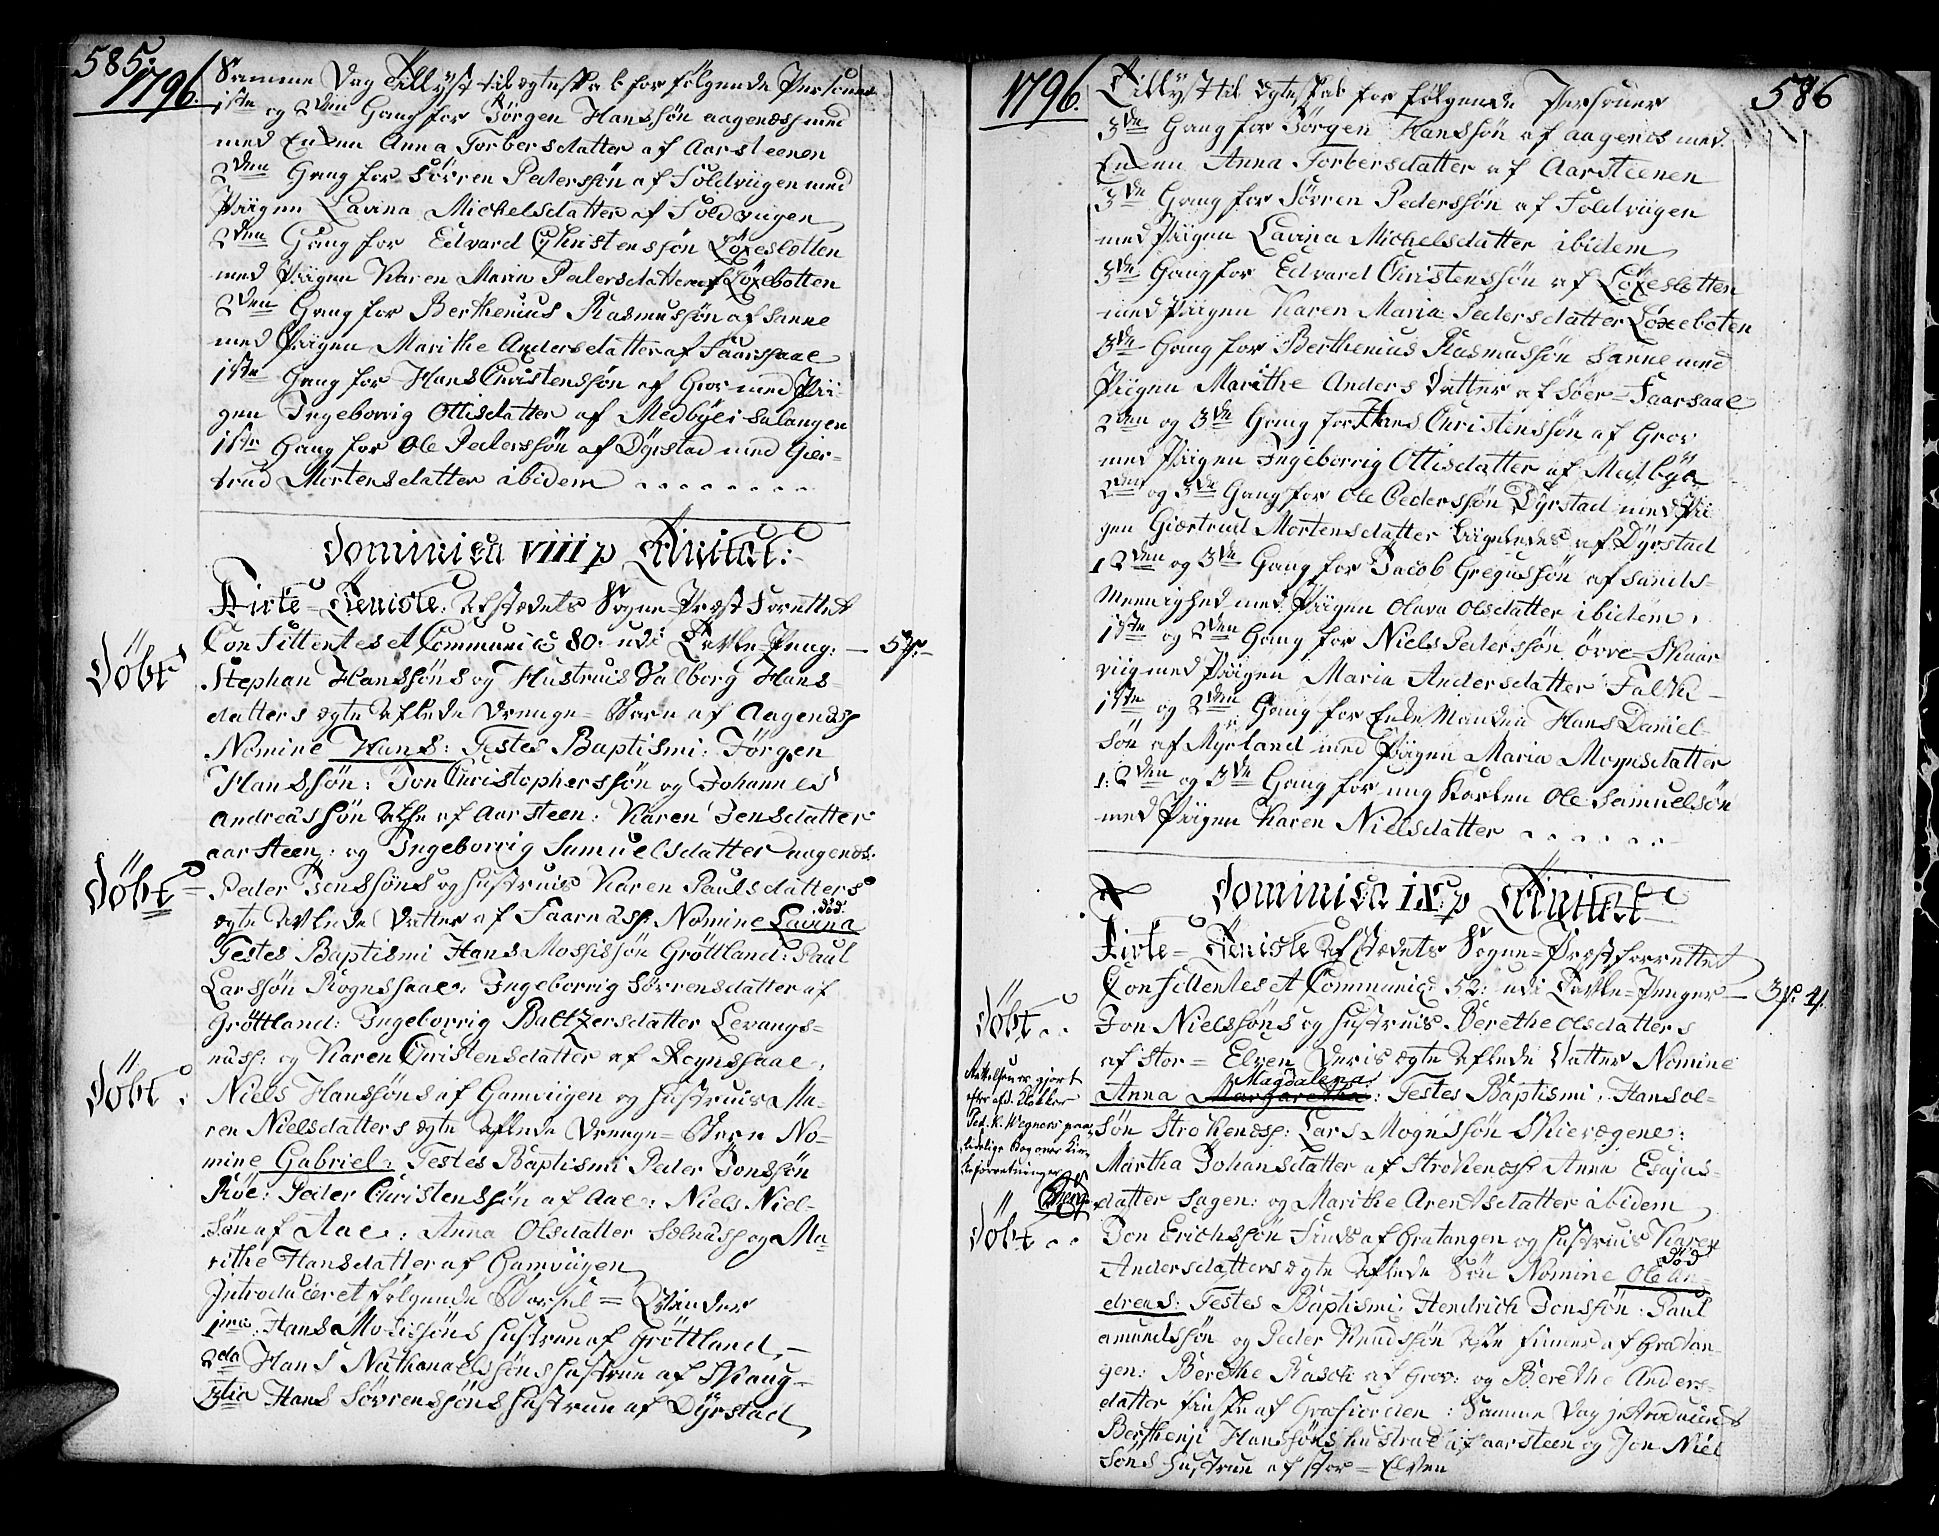 585.
1796.
Samme Dag Tillyst til ægteskab for følgende Personer
1ste og 2den Gang for Jørgen Hanssøn aagenæss med
med Enken Anna Torbersdatter af Aarsteenen
2den Gang for Sørren Pederssøn af Foldviigen med
Piigen Lavina Michelsdatter af Foldviigen
2den Gang for Edvard Christenssøn Løxesletten
med Piigen Karen Maria Pedersdatter af Løxebotten
2den Gang for Berthenius Rasmussøn af Sanne
med Piigen Marithe Andersdatter af Faarsaae
1ste Gang for Hans Christenssøn af Grov med Pii-
gen Ingeborrig Ottisdatter af Medbye i Salangen
1ste Gang for Ole Pederssøn af Dyrstad med Gier-
trud Mortensdatter ibidem
Dominica VIII p Trinitat:
Kirke-Tieniste af Stædets Sogne-Præst Forrettet
Confitentes et Communic 80: udi Tavle-Peng: — 5 —
Døbt
Stephan Hanssøns og Hustrues Valborg Hans-
datters ægte Aflede Drenge-Barn af Aagenæss
Nomine Hans: Testes Baptismi: Jørgen
Hanssøn: Jon Christopherssøn og Johannes
Andreassøn alle af Aarsteen: Karen Jensdatter
aarsteen: og Ingeborrig Samuelsdatter aagenæs.
Døbt
Peder Jenssøns og Hustrues Karen Paulsdatters
ægte Avlede Datter af Faarnæss. Nomine Lavina
død.
Testes Baptismi Hans Mossissøn Grøttland: Paul
Larssøn Rognssaae: Ingeborrig Sørrensdatter af
Grøttland: Ingeborrig Baltzersdatter Levangs-
næss: og Karen Christensdatter af Rognssaae.
Døbt
Niels Hanssøns af Gamviigen og Hustrues Ma-
ren Nielsdatters ægte Aflede Drenge-Barn No-
mine Gabriel: Testes Baptismi Peder Jonssøn
Røe: Peder Christenssøn af Aae: Niels Niel-
søn af Aae: Anna Olsdatter Sølnæss og Ma-
rithe Hansdatter af Gamviigen
Introduceret følgende Barsel-Qvinder
1ma Hans Mosissøns Hustrue af Grøttland,
2da Hans Nathanaelssøns Hustrue af Skaug
3tia Hans Sørrenssøns Hustrue af Dyrstad
1796.
586
Tillyst til Ægteskab for følgende Personer
3de Gang for Jørgen Hanssøn af aagenæs med
Enken Anna Torbersdatter af Aarsteenen
3de Gang for Sørren Pederssøn af Foldviigen
med Piigen Lavina Michelsdatter ibidem
3de Gang for Edvard Christenssøn af Løxesletten
med Piigen Karen Maria Pedersdatter Løxeboten
3de Gang for Berthenius Rasmussøn Sanne med
Piigen Marithe Anders Datter af Søer-Faarsaae
2den og 3de Gang for Hans Christenssøn af Grov
med Piigen Ingeborrig Ottisdatter af Medbye
2den og 3de Gang for Ole Pederssøn Dyrstad med Pii
gen Giertrud Mortensdatter ligeledes af Dyrstad
1 2den og 3de Gang for Jacob Gregussøn af Sands-
Meenighed med Piigen Olava Olsdatter ibidem.
1ste og 2den Gang for Niels Pederssøn Øvre-Skaar
viig med Piigen Maria Andersdatter
1ste og 2den Gang for Enke Manden Hans Daniel-
søn af Myrland med Piigen Maria Mognsdatter
1: 2den og 3de Gang for ung Karlen Ole Samuelsøn
med Piigen Karen Nielsdatter
Dominica IX p Trinitat
Kirke-Tieniste af Stædets Sogne-Præst forrettet
Confitentes et Communic: 52: udi Tavle-Penger — 3 4
Døbt
Jon Nielssøns og Hustrues Berethe Olsdatters
af Stor-Elven Deris ægte Aflede Datter Nomine
Magdalena
Anna Margaretha: Testes Baptismi: Hans ol-
søn Strokenæss: Lars Mognssøn Skieregene:
Martha Johansdatter af Strokenæss Anna Esajas-
datter Hagen: og Marithe Arentsdatter ibidem
Rettelsen er gjort
efter afd. Klokker
Ped. K. Wegners paa-
lidelige Bog over Kir-
keforretninger
Berg
Døbt
Jon Erichssøn Finds af Gratangen og Hustrues Karen
Andersdatters ægte Aflede Søn Nomine Ole An-
død
dreas: Testes Baptismi: Hendrich Jonssøn: Paul
amundssøn og Peder Knudssøn alle Finner af Gratan-
gen: Berethe Rasch af Grov: og Berethe Anders-
datter Finske af Grafiorden: Samme Dag introduceret
Berthenji Hanssøns Hustrue af aarsteen og Jon Niel
søns Hustrue af Stor-Elven